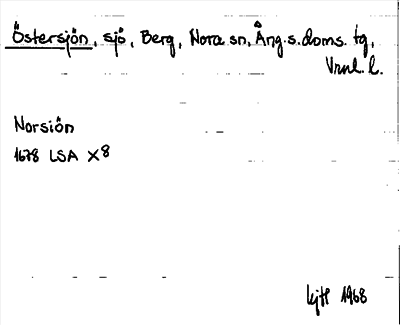 Östersjön, sjö, Berg, Nora sn, Ång.s.doms. tg,
Vrml. l.
Norsiön
1678 LSA X8
1968